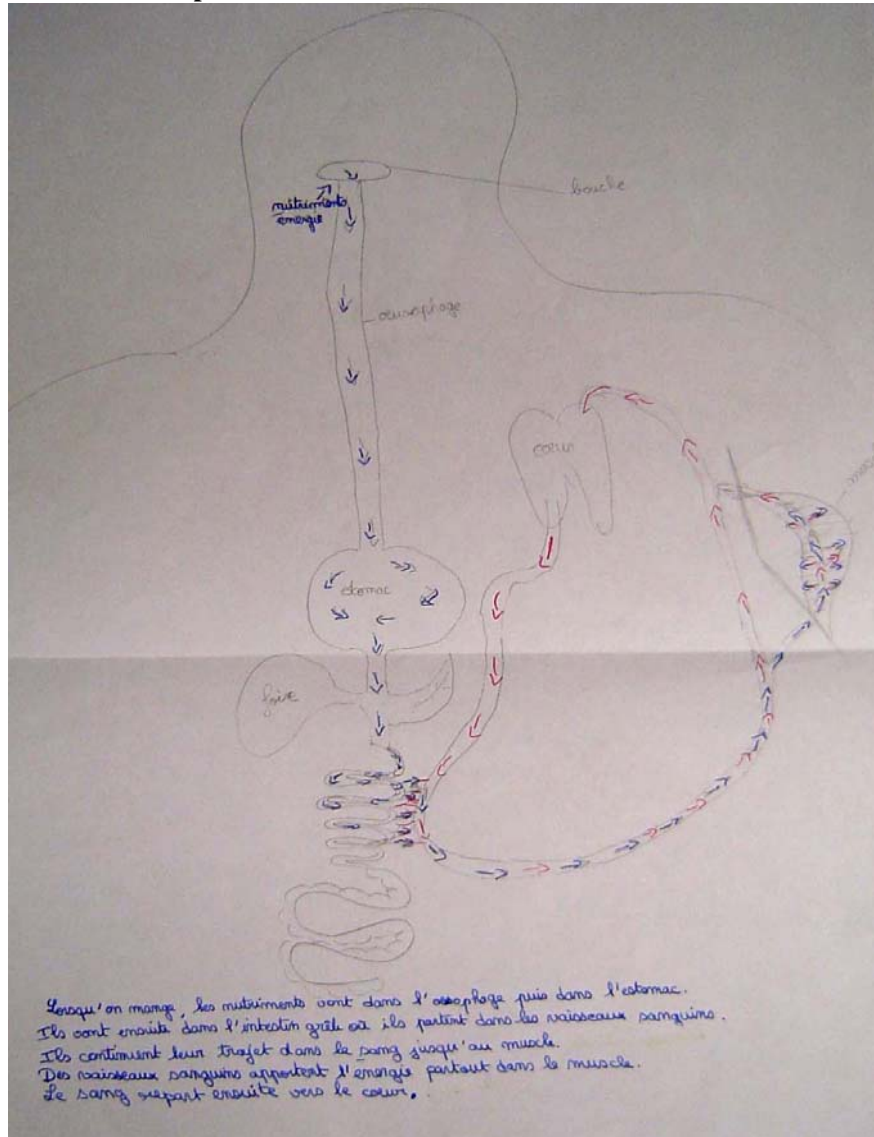 bouche
nutriments
énergie
oeusophage
coeur
estomac
foire
Lorsqu'on mange, les nutriments vont dans l'oesophage puis dans l'estomac.
Ils vont ensuite dans l'intestin grêle où ils partent dans les vaisseaux sanguins.
Ils continuent leur trajet dans le sang jusqu'au muscle.
Des vaisseaux sanguins apportent l'énergie partout dans le muscle.
Le sang repart ensuite vers le coeur.